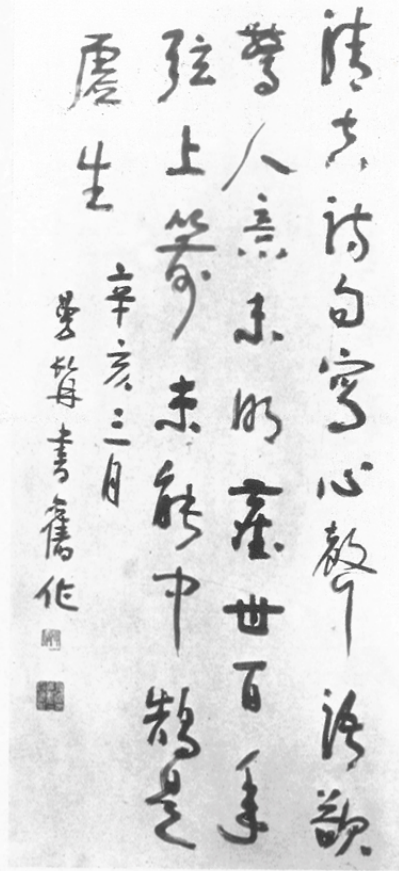 清真詩句寫心聲語欲
驚人意未明世百年
弦上箭未能中鵠是
虛生
辛亥三月
曼髯書舊作